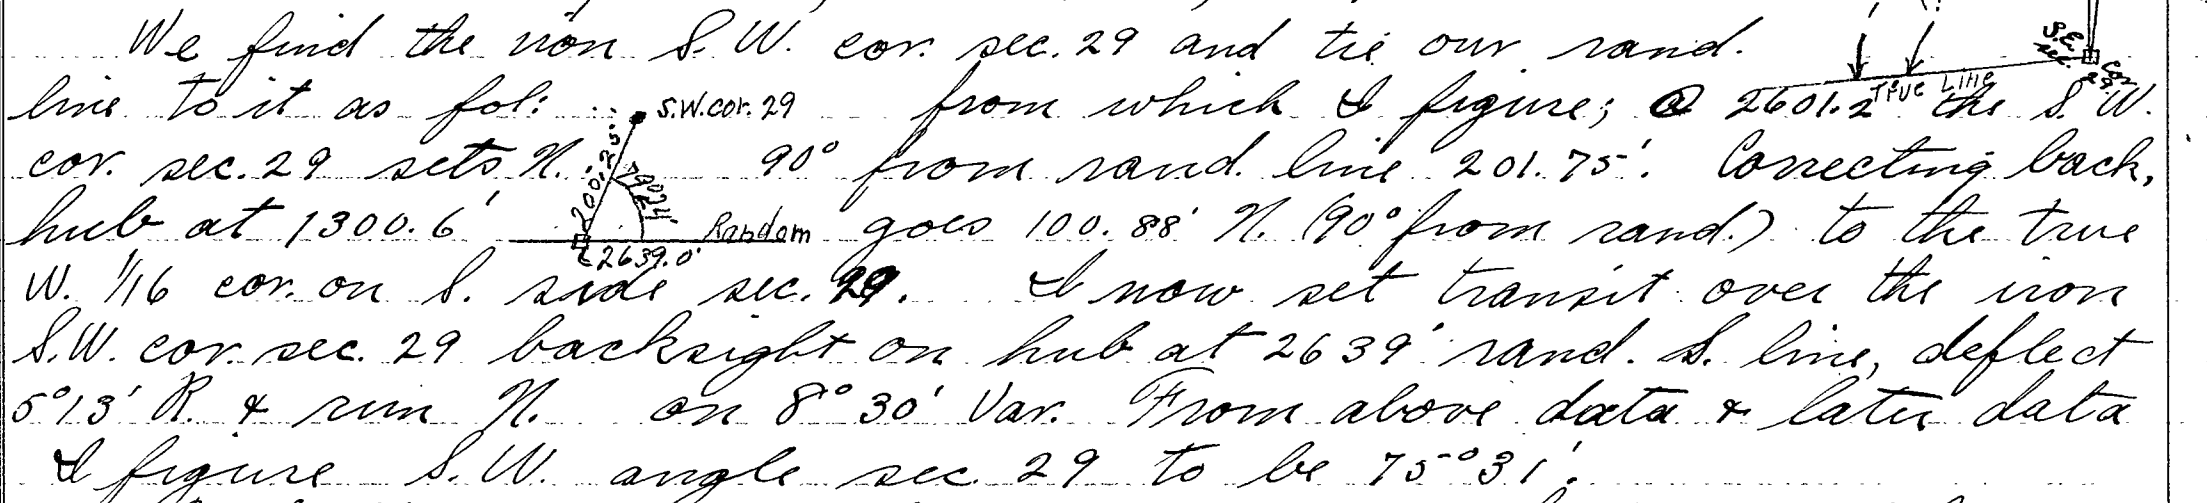 We find the iron S.W. cor. sec. 29 and tie our rand.
line to it as fol: S.W. cor. 29 from which I figure; @ 2601.2' the S.W.
cor. sec. 29 sets N. 90° from rand. line 201.75'. Correcting back,
hub at 1300.6' Random goes 100.88' N. (90° from rand.) to the true
2639.0'
W. 1/16 cor. on S. side sec. 29. I now set transit over the iron
S.W. cor. sec. 29 backsight on hub at 2639' rand. S. line, deflect
5°13' R. & run N. on 8°30' Var. From above data & later data
I figure S.W. angle sec. 29 to be 75°31'.
S.E. cor.
sec. 29
True Line
79°24'